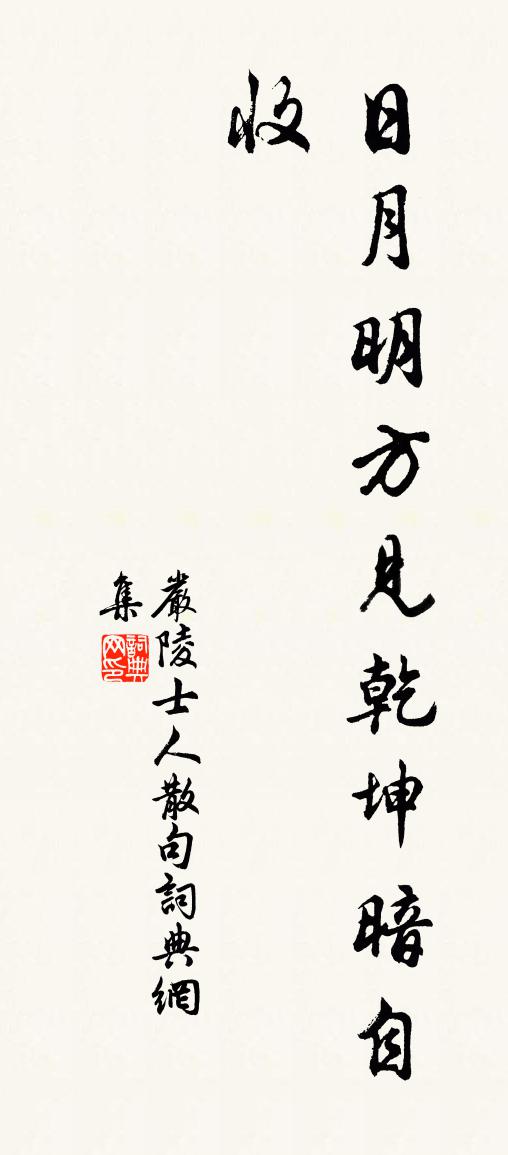 日月明方見乾坤暗自
收
嚴陵士人散句詞典網
集
詞典
网印